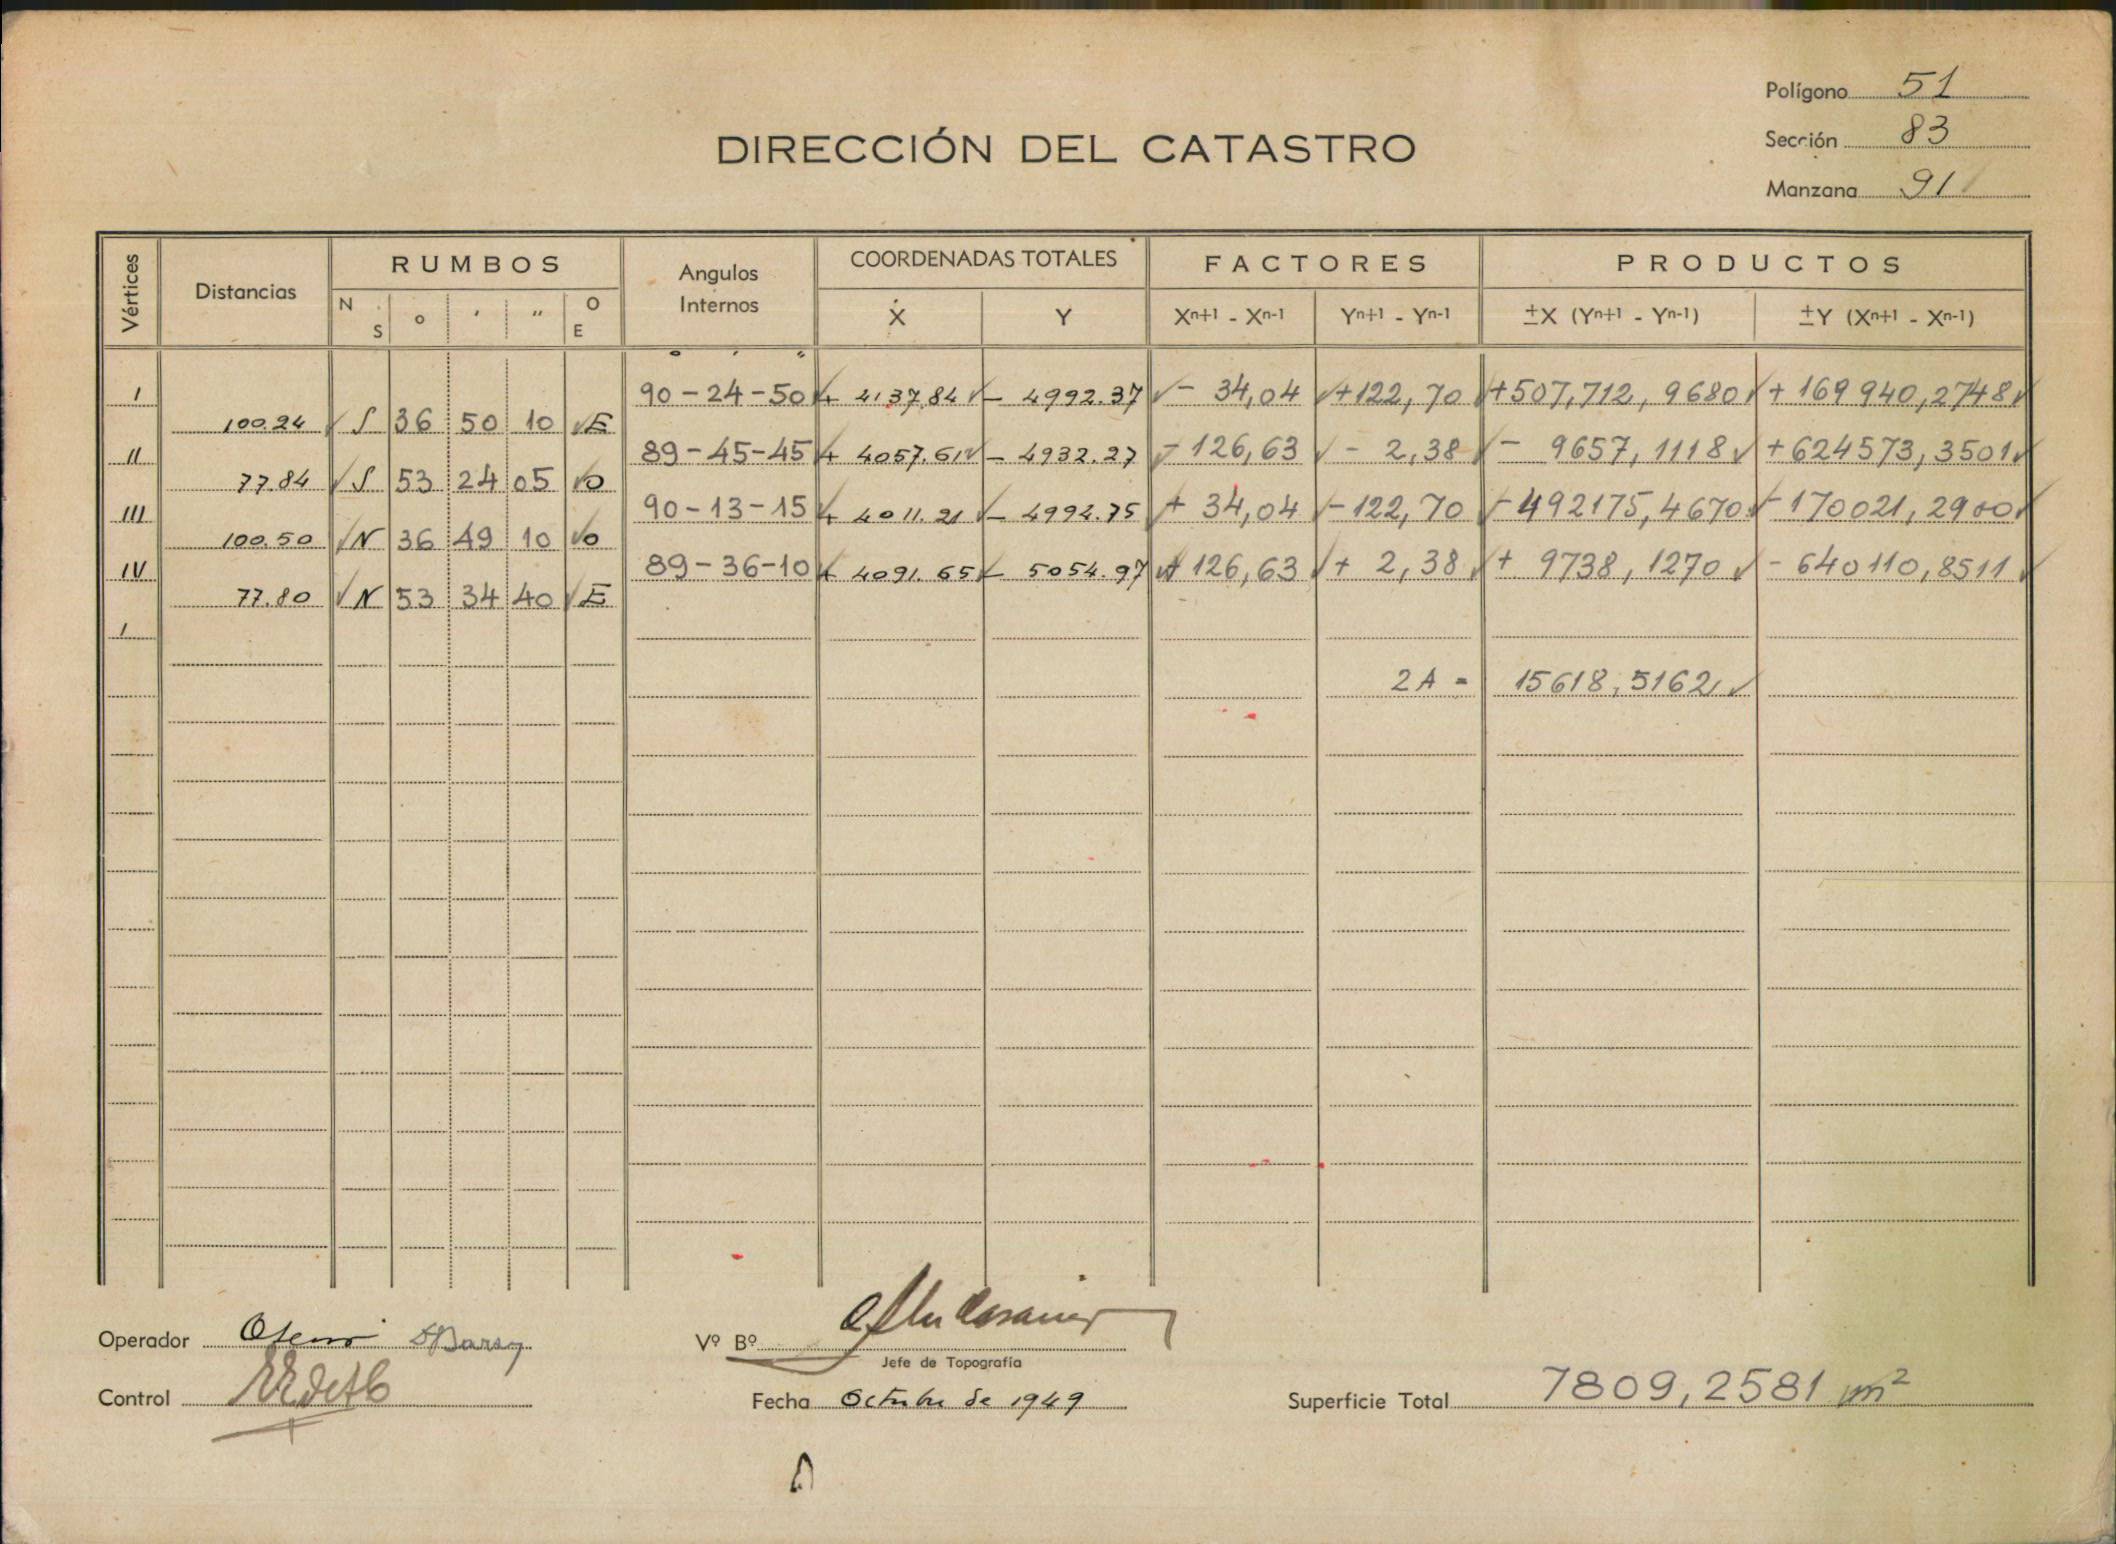 Polígono 51
DIRECCIÓN DEL CATASTRO
Sección 83
Manzana 91
Vértices Distancias RUMBOS Angulos Internos COORDENADAS TOTALES FACTORES PRODUCTOS
N S o ' " O E X Y Xn+1 - Xn-1 Yn+1 - Yn-1 ±X (Yn+1 - Yn-1) ±Y (Xn+1 - Xn-1)
o ' "
I 90-24-50 + 4137,84 - 4992.37 - 34,04 +122,70 +507,712,9680 + 169940,2748
100.24 S 36 50 10 E
II 89-45-45 + 4057.61 - 4932.27 - 126,63 - 2,38 - 9657,1118 +624573,3501
77.84 S 53 24 05 O
III 90-13-15 + 4011.21 - 4994.75 + 34,04 -122,70 -492175,4670 -170021,2900
100.50 N 36 49 10 O
IV 89-36-10 + 4091.65 - 5054.97 + 126,63 + 2,38 + 9738,1270 - 640110,8511
77.80 N 53 34 40 E
I
2A = 15618,5162
Operador
Vº Bº
Jefe de Topografía
Control
Fecha Octubre de 1949
Superficie Total 7809,2581 m²